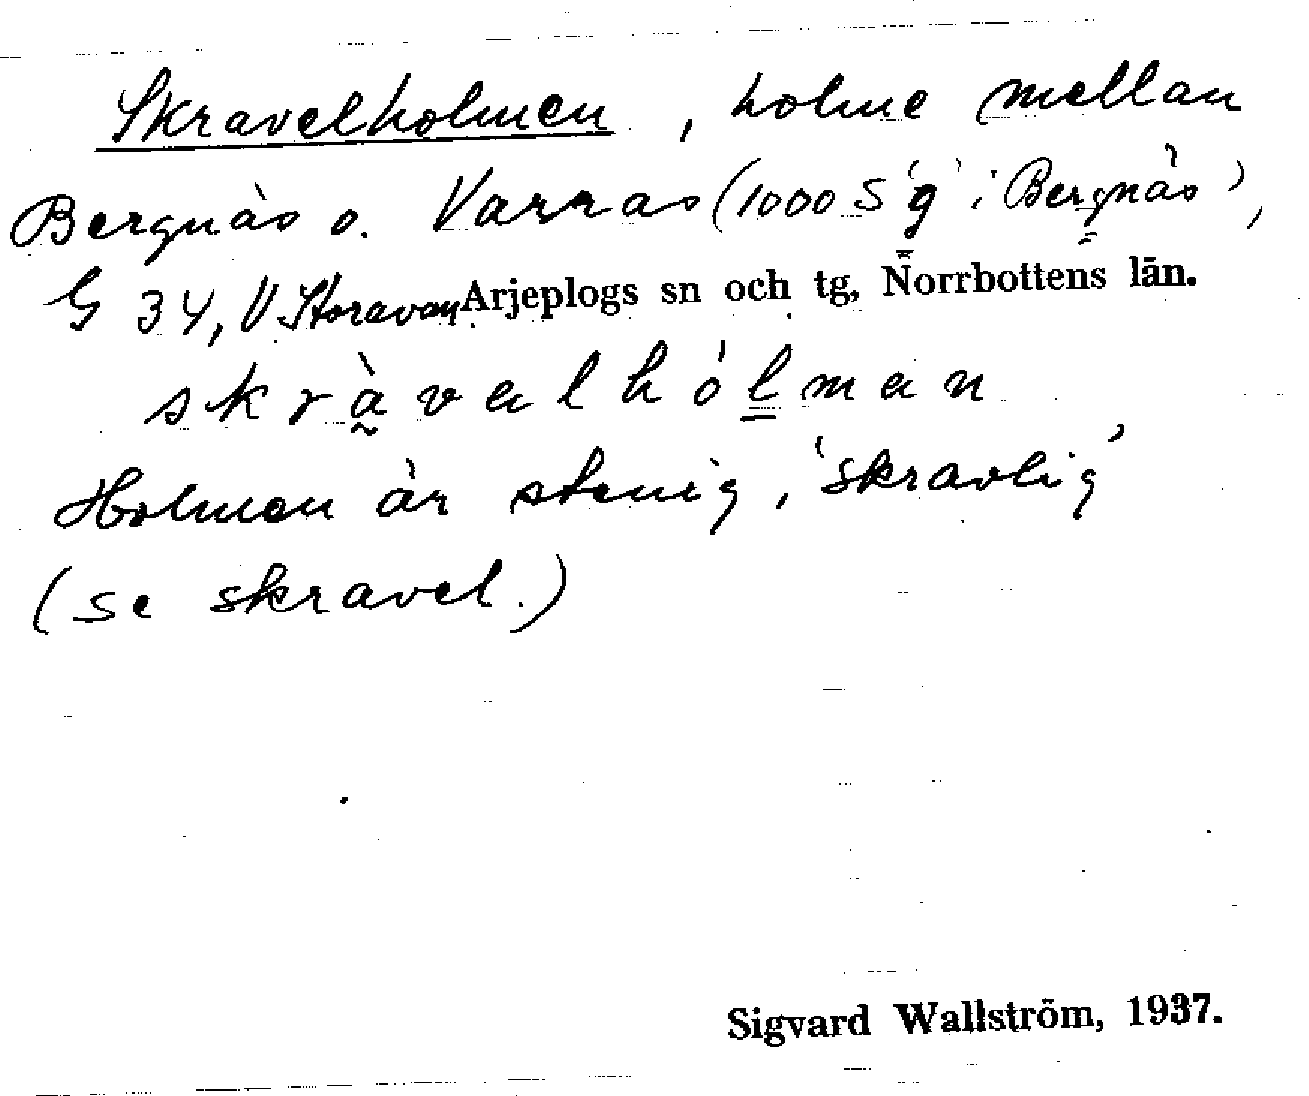 Skravelholmen, holme mellan
Bergnäs o. Varras (1000 S 'g' i Bergnäs),
G 34, V Storavan Arjeplogs sn och tg, Norrbottens län.
skràvelhólman
Holmen är stenig, 'skravlig'
(se skravel.)
Sigvard Wallström, 1937.